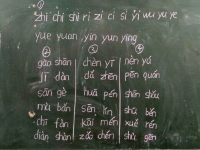 ①
zhi chi shi ri zi ci si yi wu yu ye
yue yuan yin yun ying
② ③ ④
gāo shān chèn yī
lǐ dàn dǎ zhēn pén
sān gè huā pén
mù bǎn sēn lín shù
chī fàn kāi mén xuě rén
diàn shàn zǎo chén shù gēn